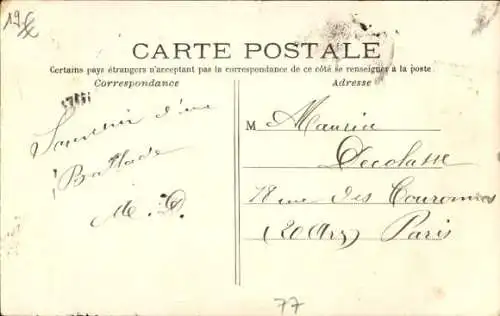 19
CARTE POSTALE
Certains pays étrangers n'acceptant pas la correspondance de ce côté se renseigner à la poste
Correspondance
Adresse
Souvenir d'une
Ballade
M. D.
M Maurice
Decolasse
78 rue des Couronnes
(20 Arr) Paris
77